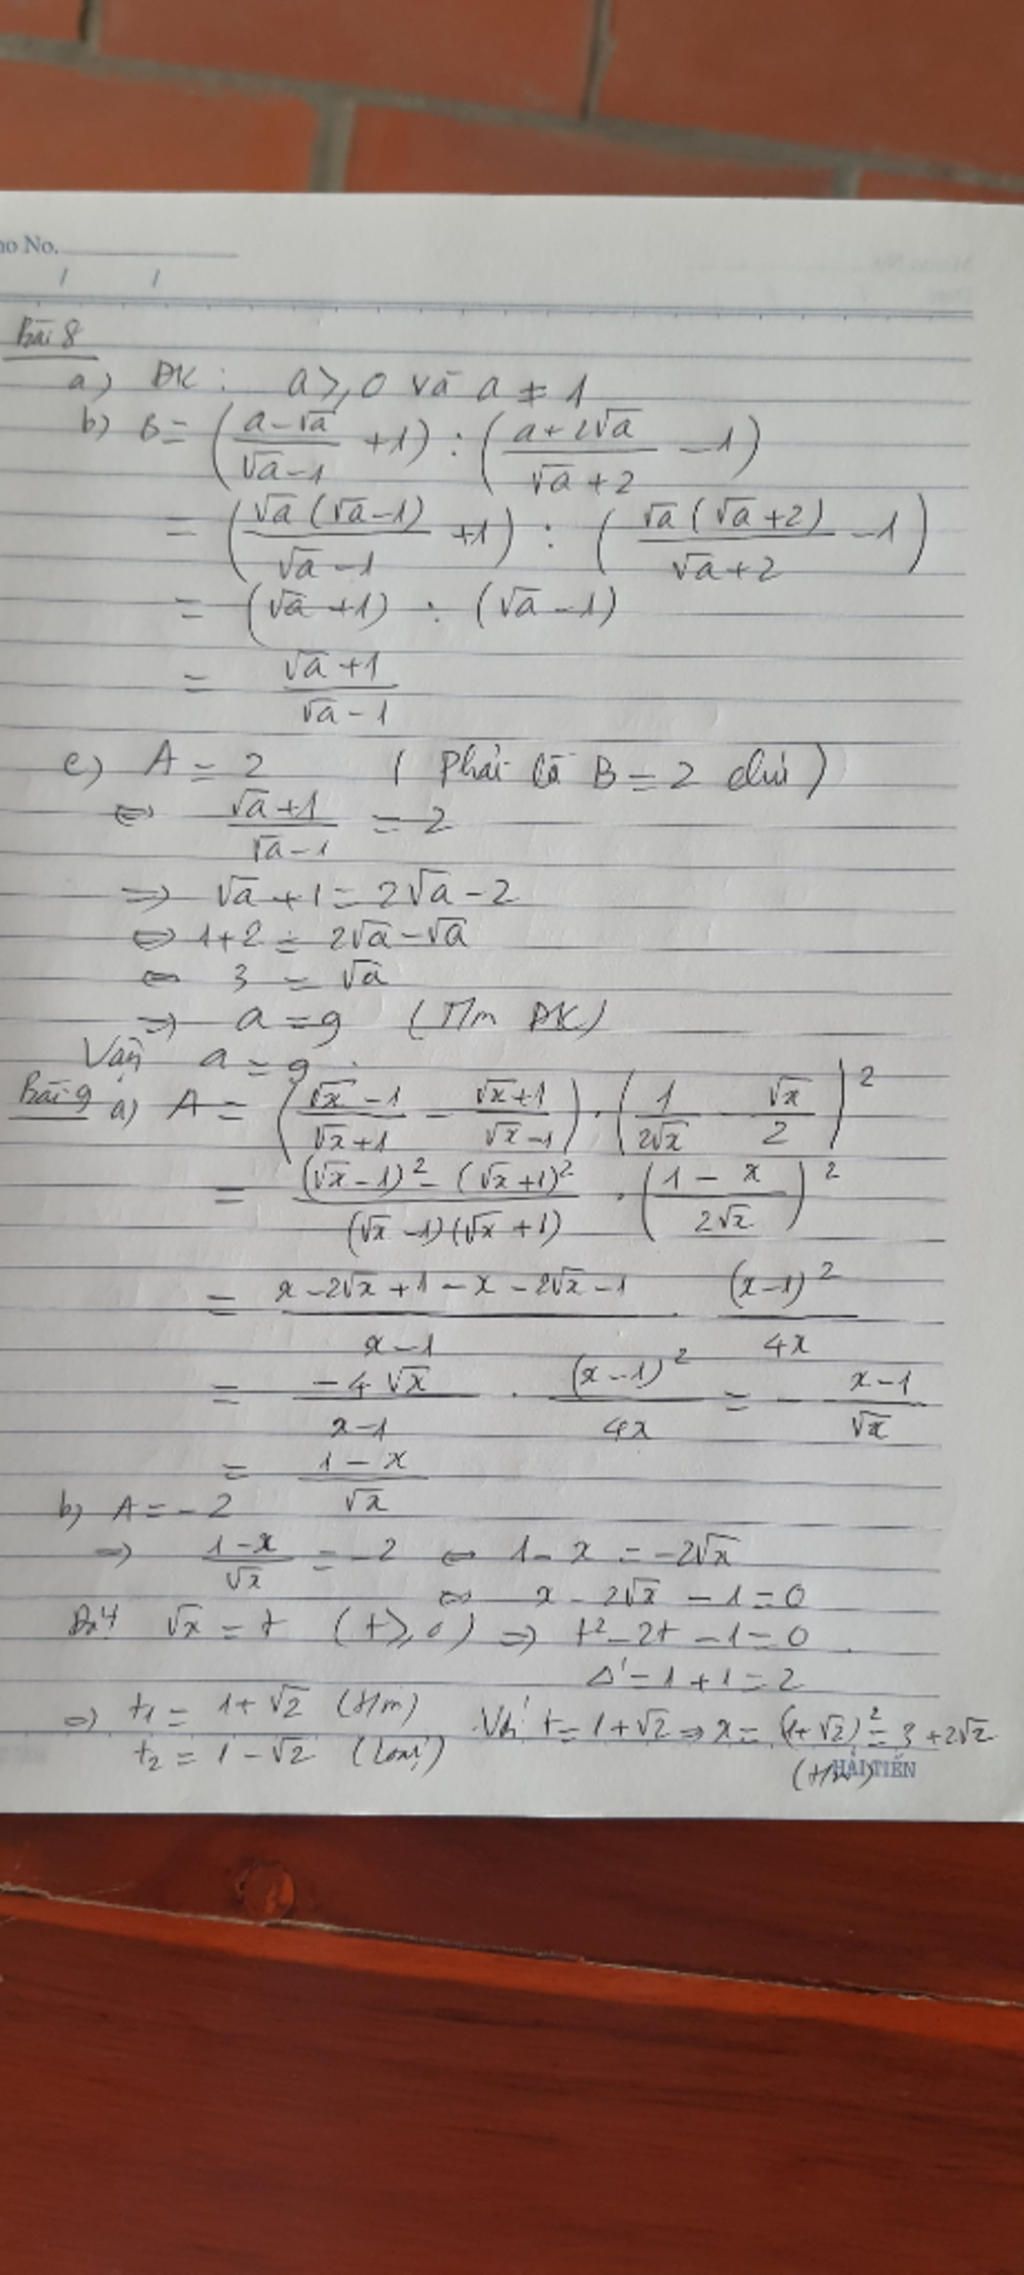 No.
Bài 8
a) ĐK : a ≥ 0 và a ≠ 1
b) B = ((a-√a)/(√a-1) + 1) : ((a+2√a)/(√a+2) - 1)
= (√a(√a-1)/(√a-1) + 1) : (√a(√a+2)/(√a+2) - 1)
= (√a + 1) : (√a - 1)
= (√a+1)/(√a-1)
c) A = 2 ( Phải là B = 2 chứ )
⇔ (√a+1)/(√a-1) = 2
⇒ √a + 1 = 2√a - 2
⇔ 1+2 = 2√a - √a
⇔ 3 = √a
⇒ a = 9 (T/m ĐK)
Vậy a = 9.
Bài 9 a) A = ((√x-1)/(√x+1) - (√x+1)/(√x-1)) . (1/(2√x) - √x/2)²
= ((√x-1)² - (√x+1)²)/((√x-1)(√x+1)) . ((1-x)/(2√x))²
= (x-2√x+1-x-2√x-1)/(x-1) . (x-1)²/(4x)
= (-4√x)/(x-1) . (x-1)²/(4x) = - (x-1)/√x
= (1-x)/√x
b) A = -2
⇒ (1-x)/√x = -2 ⇔ 1-x = -2√x
⇔ x - 2√x - 1 = 0
Đặt √x = t (t ≥ 0) ⇒ t² - 2t - 1 = 0
Δ' = 1 + 1 = 2
⇒ t₁ = 1+√2 (t/m) Với t = 1+√2 ⇒ x = (1+√2)² = 3+2√2
t₂ = 1-√2 (loại) (t/m)
HẢI TIẾN